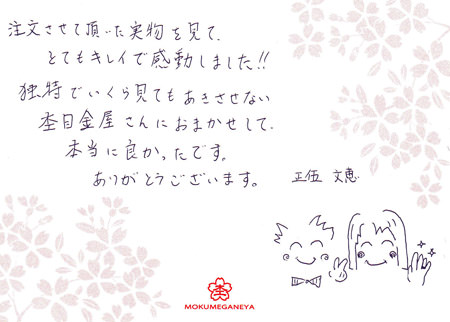 注文させて頂いた実物を見て、
とてもキレイで感動しました!!
独特でいくら見てもあきさせない
杢目金屋さんにおまかせして、
本当に良かったです。
ありがとうございます。 正伍 文恵
MOKUMEGANEYA